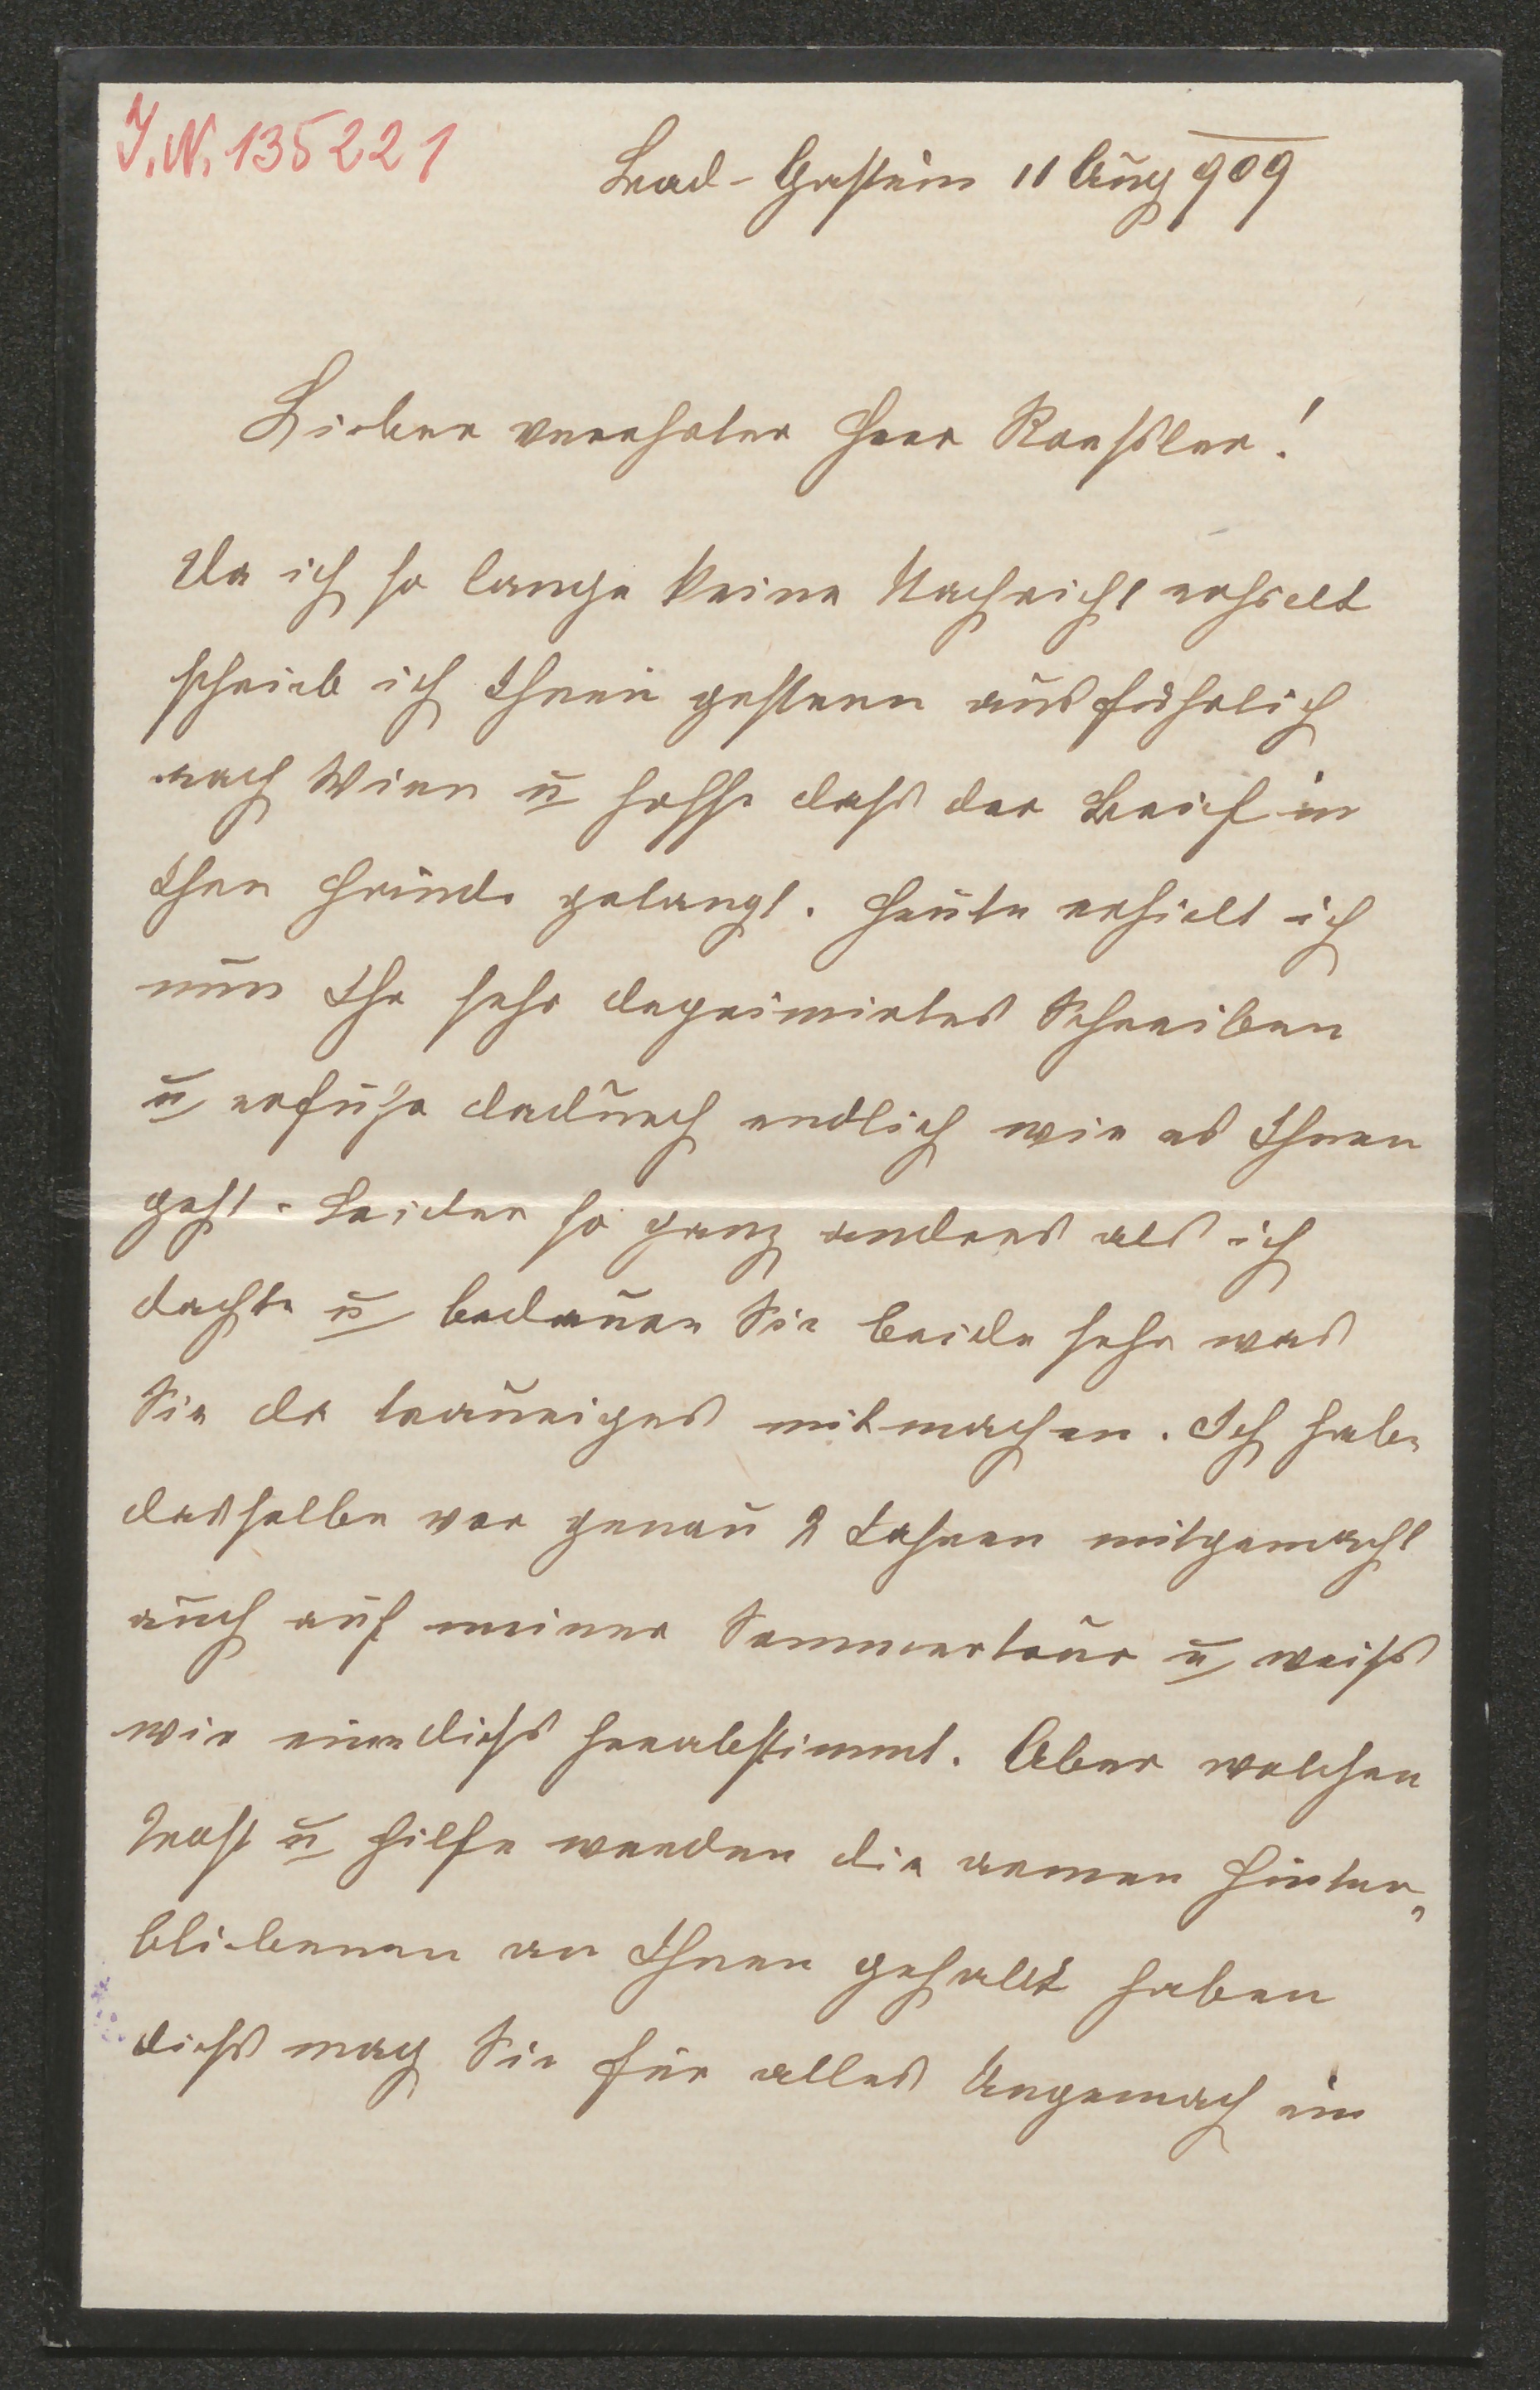 J.N. 135221
Bad-Gastein 11 Aug 909
Lieber verehrter Herr Roessler!
Da ich so lange keine Nachricht erhielt
schrieb ich Ihnen gestern ausführlich
nach Wien u hoffe dass der Brief in
Ihre Hände gelangt. Heute erhielt ich
nun Ihr sehr deprimirtes Schreiben
u erfuhr dadurch endlich wie es Ihnen
geht. Leider so ganz anders als ich
dachte u bedaure Sie beide sehr was
Sie da trauriges mitmachen. Ich habe
dasselbe vor genau 2 Jahren mitgemacht
auch auf meiner Sommertour u weiss
wie einen diess herabstimmt. Aber welchen
Trost u Hilfe werden die armen Hinter„
bliebenen an Ihnen gehabt haben
diess mag Sie für alles Ungemach ein